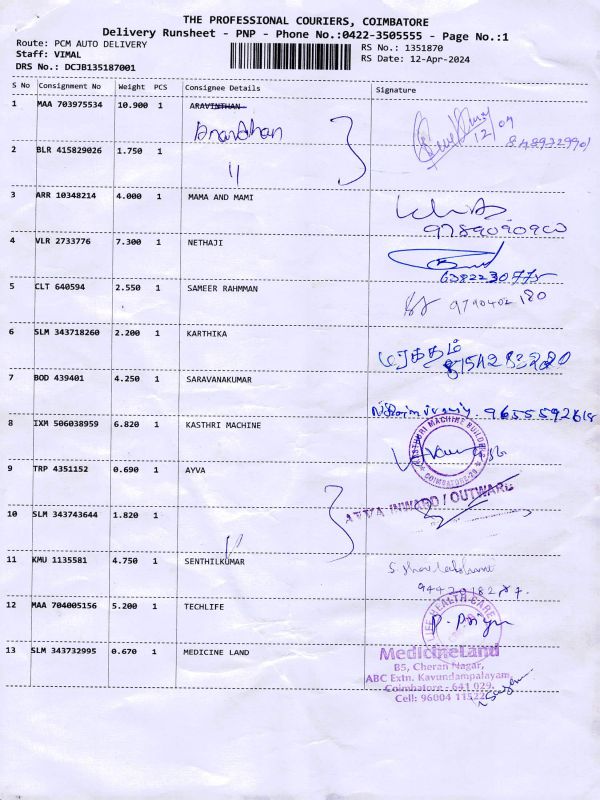 THE PROFESSIONAL COURIERS, COIMBATORE
Delivery Runsheet - PNP - Phone No.:0422-3505555 - Page No.:1
Route: PCM AUTO DELIVERY
RS No.: 1351870
Staff: VIMAL
RS Date: 12-Apr-2024
DRS No.: DCJB135187001
S No Consignment No Weight PCS Consignee Details Signature
1 MAA 703975534 10.900 1 ARAVINTHAN
12/04
2 BLR 415829026 1.750 1
3 ARR 10348214 4.000 1 MAMA AND MAMI
4 VLR 2733776 7.300 1 NETHAJI
6382230775
5 CLT 640594 2.550 1 SAMEER RAHMMAN
9790402180
6 SLM 343718260 2.200 1 KARTHIKA
7 BOD 439401 4.250 1 SARAVANAKUMAR
9655592618
8 IXM 506038959 6.820 1 KASTHRI MACHINE
KASTHURI MACHINE BUILDERS
COIMBATORE-29
9 TRP 4351152 0.690 1 AYVA
AYVA INWARD / OUTWARD
10 SLM 343743644 1.820 1
11 KMU 1135581 4.750 1 SENTHILKUMAR
12 MAA 704005156 5.200 1 TECHLIFE
LIFE HEALTH CARE
P. Priya
13 SLM 343732995 0.670 1 MEDICINE LAND
MedicineLand
B5, Cheran Nagar,
ABC Extn. Kavundampalayam,
Coimbatore - 641 029.
Cell: 96004 11522